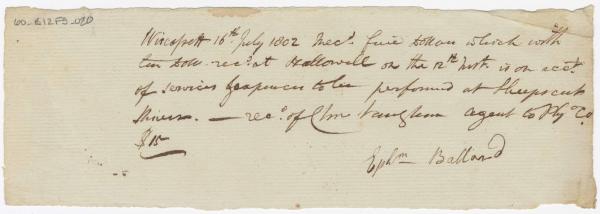 60-B12F5-020
Wiscassett 16th July 1802 Recd. five Dollars which with
ten Doll. recd. at Hallowell on the 12th Inst. is on acct.
of services & expences to be performed at Sheepscut
River. — recd. of Chs. Vaughan agent to Ply. Co.
$15
Ephm Ballard